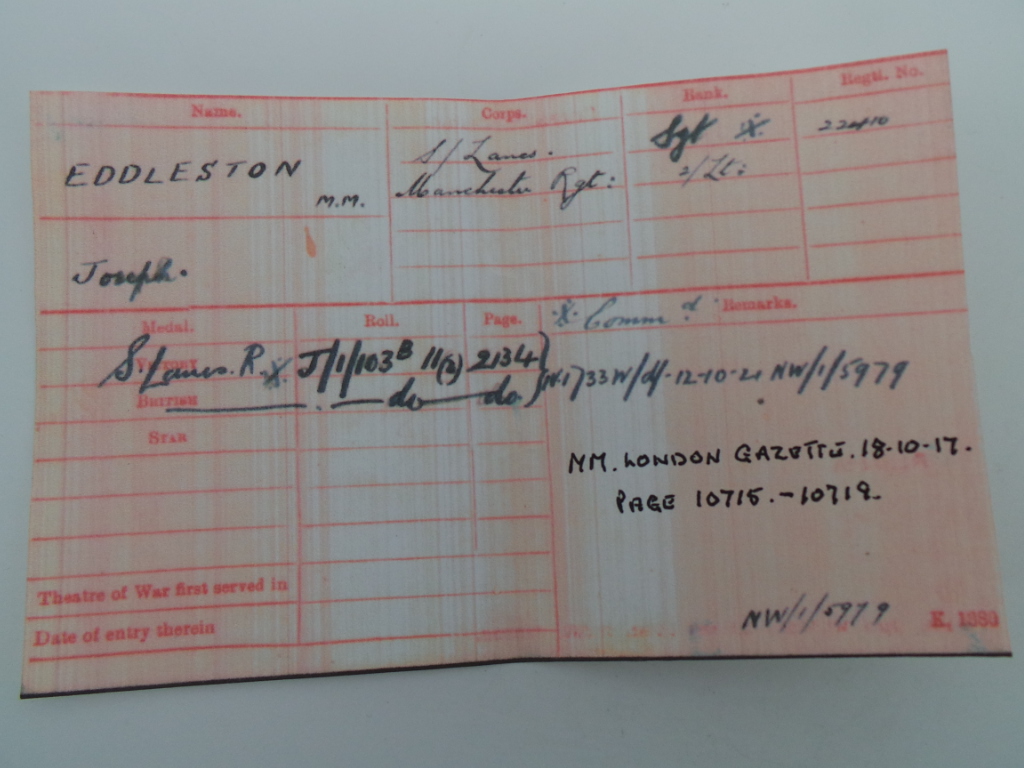 Name. Corps. Rank. Regtl. No.
EDDLESTON S/Lancs. Sgt X. 22410
M.M. Manchester Rgt: 2/Lt:
Joseph.
Medal. Roll. Page. X. Commd. Remarks.
VICTORY S.Lancs. R. X. J/1/103B 11(2) 2134
BRITISH do do (N.1)733W/d/-12-10-21 NW/1/5979
STAR
MM. LONDON GAZETTE. 18-10-17.
PAGE 10715.-10719.
Theatre of War first served in
Date of entry therein
NW/1/5979 K. 1380